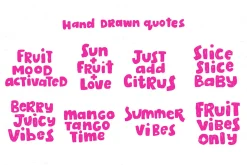 Hand Drawn quotes
FRUiT
MOOD
aCTiVaTED
Sun
+
FRuiT
+
LOVE
JUST
add
CiTRUS
SLiCE
SLiCE
BaBY
BERRY
JUiCY
ViBES
manGO
TanGO
TimE
SUmmER
ViBES
FRUiT
ViBES
OnLY